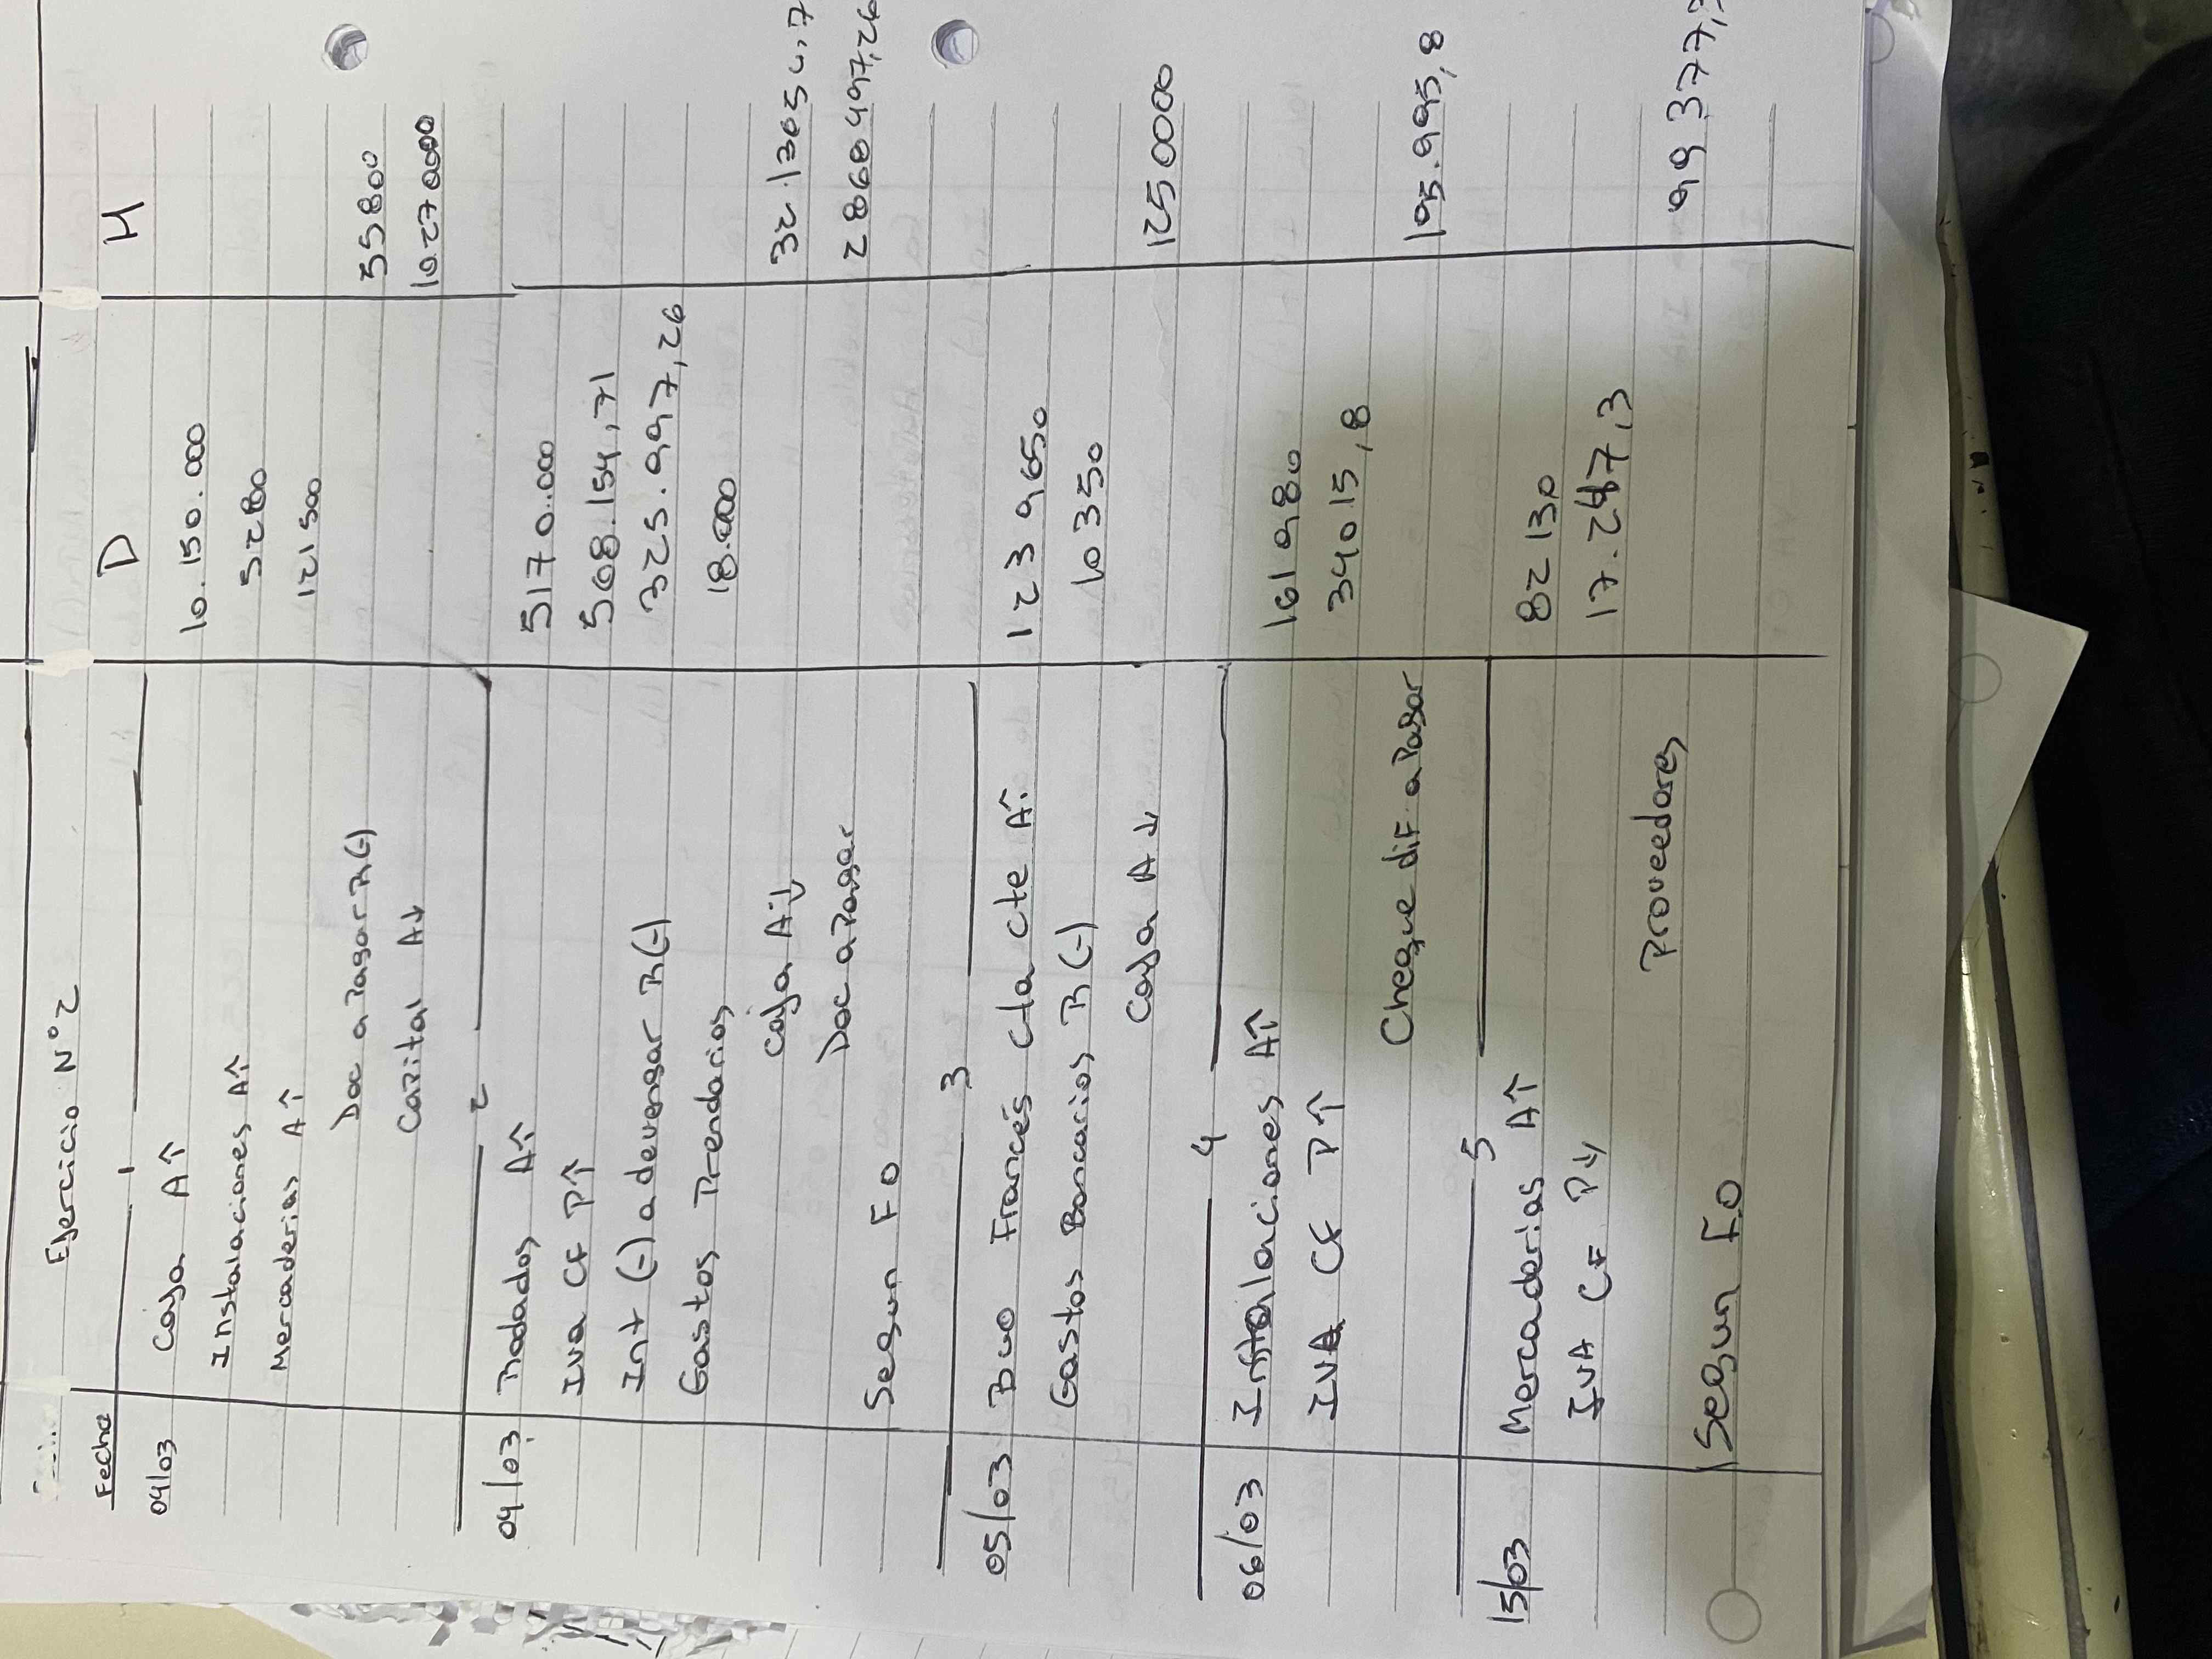 Ejercicio N°2
Fecha D H
1
04/03 Caja A↑ 10.150.000
Instalaciones A↑ 5280
Mercaderias A↑ 121500
Doc a Pagar R(-) 55800
Capital A↓ 10.270000
2
04/03 Rodados A↑ 5170.000
Iva CF P↑ 568.154,71
Int (-) a devengar R(-) 325.997,26
Gastos Prendarios 18.000
Caja A↓ 32.13654,7
Doc a Pagar 2868497,26
Segun FO
3
05/03 Bco Francés cta cte A↑. 1239650
Gastos Bancarios R(-) 10350
Caja A↓ 1250000
4
06/03 Instalaciones A↑ 161980
IVA CF P↑ 34015,8
Cheque dif a Pagar 195.995,8
5
15/03 Mercaderias A↑ 82130
IVA CF P↓ 17.247,3
Proveedores 99377,3
Segun F.O